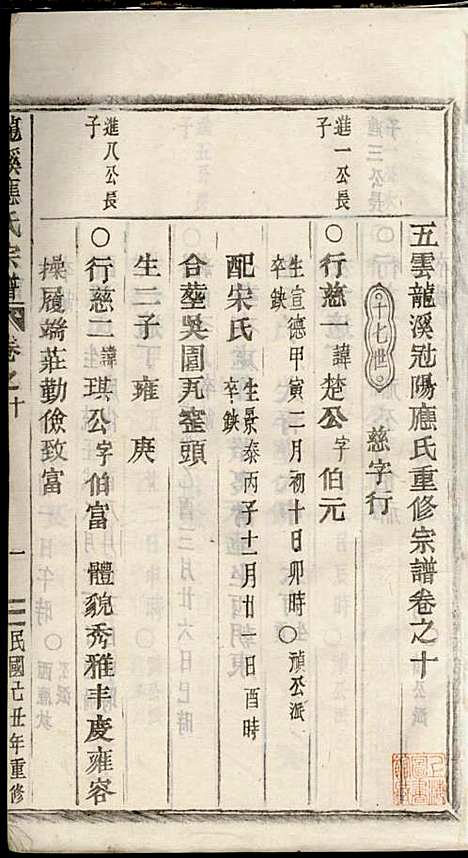 五雲龍溪在陽應氏重修宗譜卷之十
十七世
慈字行
進一公長子
○行慈一諱楚公字伯元
生宣德甲寅二月初十日卯時○頑公派
卒缺
配宋氏
生景泰丙子十一月廿一日酉時
卒缺
合塟吳園瓦窑頭
生二子雍 庚
進八公長子
○行慈二諱琪公字伯富 體貌秀雅丰度雍容
操履端莊勤儉致富
龍溪應氏宗譜 卷之十 一 民國己丑年重修